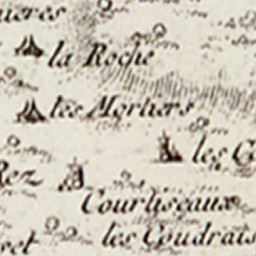 la Roche
les Mortiers
les C
Rez
Courliseaux
les Coudrais